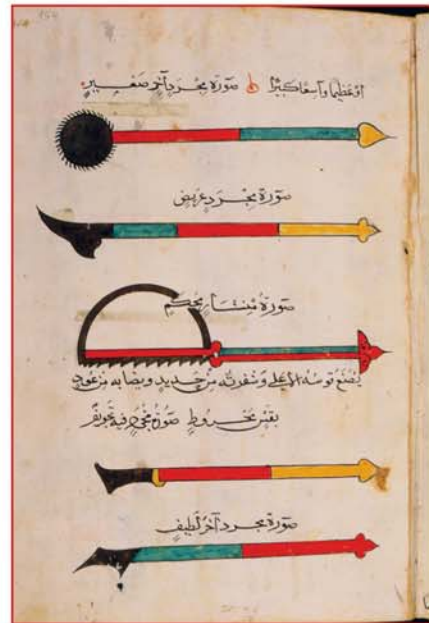 او عظيما واسعا كبيرا صورة مجرد آخر صغير
صورة مجرد عريض
صورة منشار محكم
يصنع قوسه الاعلى وشفرته من حديد ونصابه من عود
بقس مخروط صورة مجرد فيه تجويف
صورة مجرد آخر لطيف